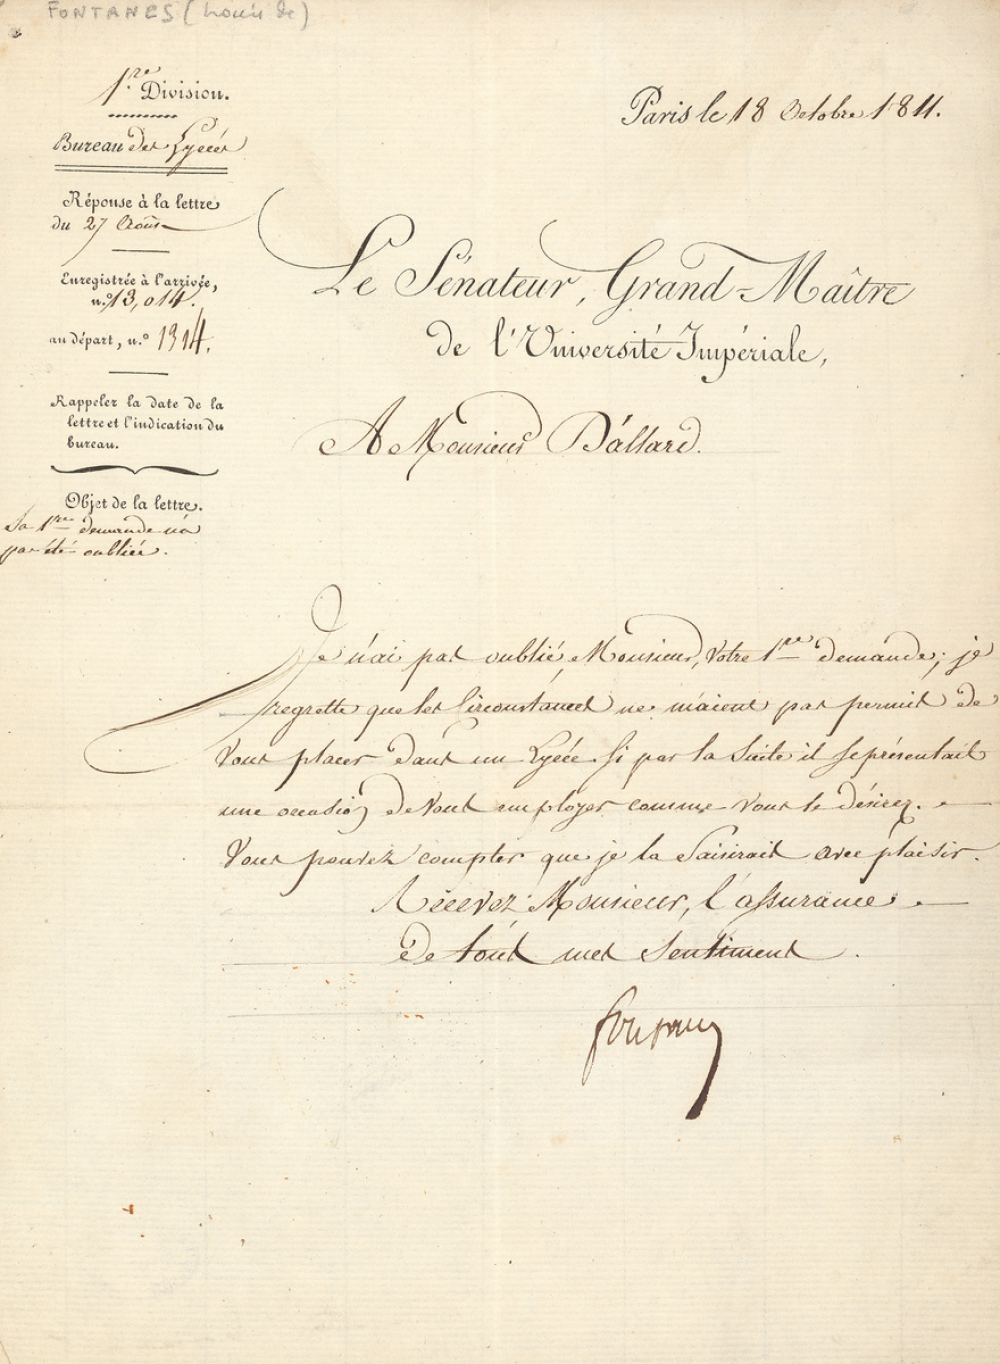 FONTANES (Louis de)
1.re Division.
Bureau des Lycées
Réponse à la lettre
du 27 Août
Enregistrée à l'arrivée,
n.º 13,014.
au départ, n.º 1314.
Rappeler la date de la
lettre et l'indication du
bureau.
Objet de la lettre.
Sa 1re demande n'a
pas été oubliée.
Paris le 18 Octobre 1811.
Le Sénateur, Grand-Maître
de l'Université Impériale,
A Monsieur Dallard.
Je n'ai pas oublié, Monsieur, votre 1re demande; je
regrette que les Circonstances ne m'aient pas permis de
Vous placer dans un Lycée. Si par la Suite il se présentait
une occasion de Vous employer comme Vous le désirez.
Vous pouvez compter que je la Saisirais avec plaisir.
Recevez Monsieur, l'assurance
de tous mes Sentiment.
Fontanes